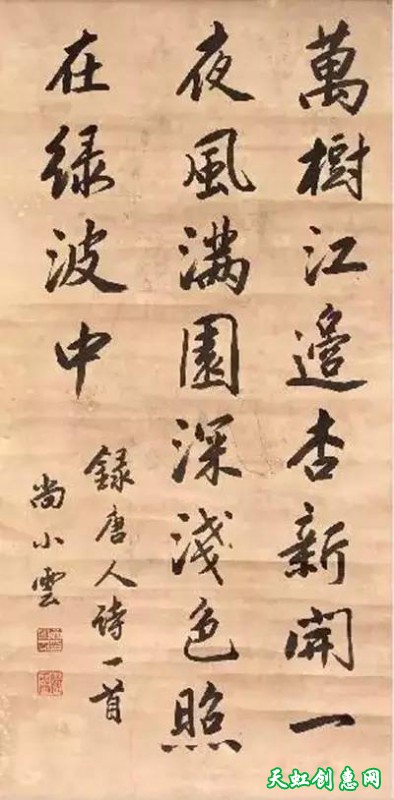 萬樹江邉杏新開一
夜風滿園深淺色照
在緑波中
録唐人詩一首
尚小雲
天虹创惠网